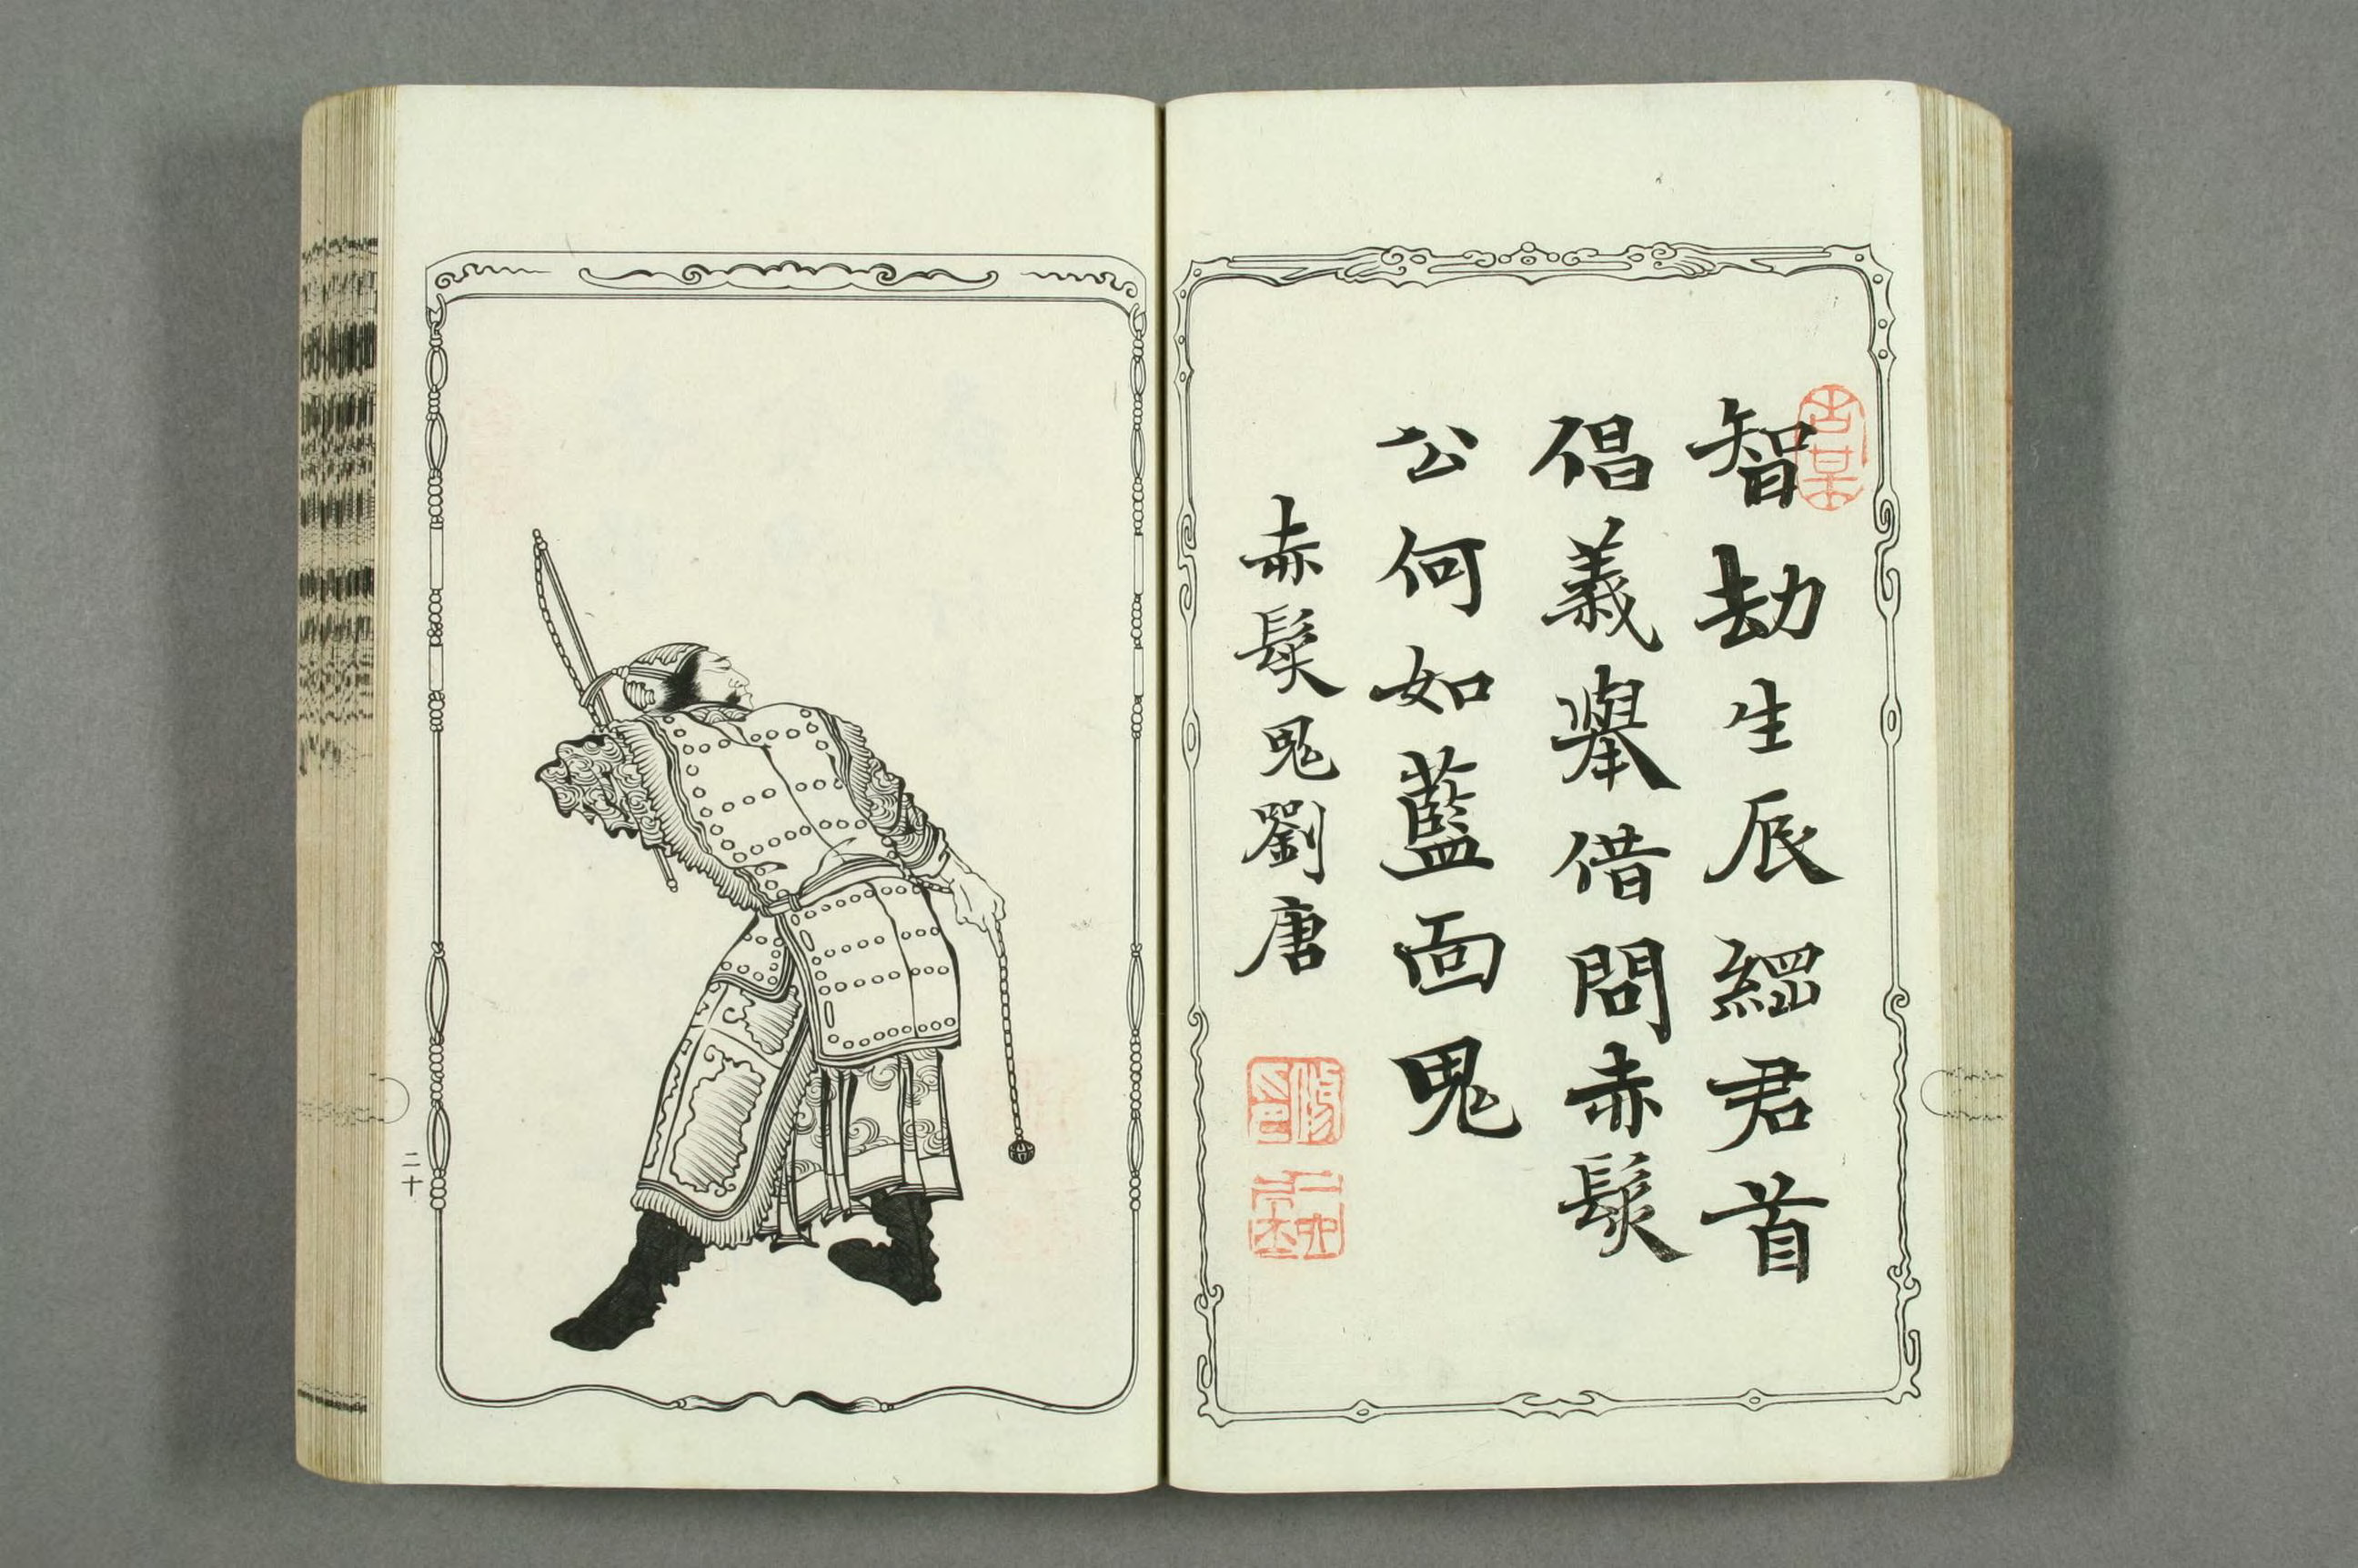 古某
智劫生辰綱君首
倡義舉借問赤髮
公何如藍面鬼
赤髮鬼劉唐
二十